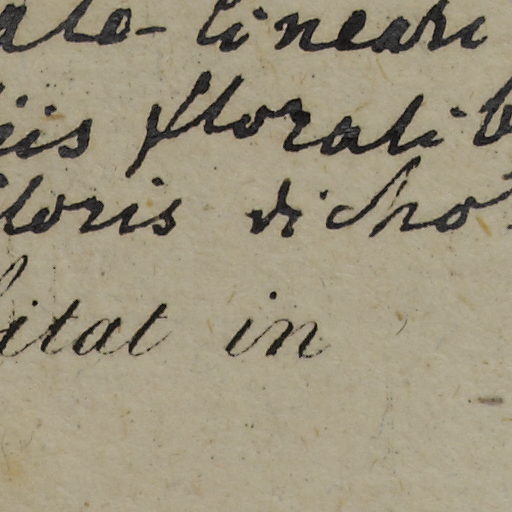 ate-lineari
iis floralib
loris dicho
itat in